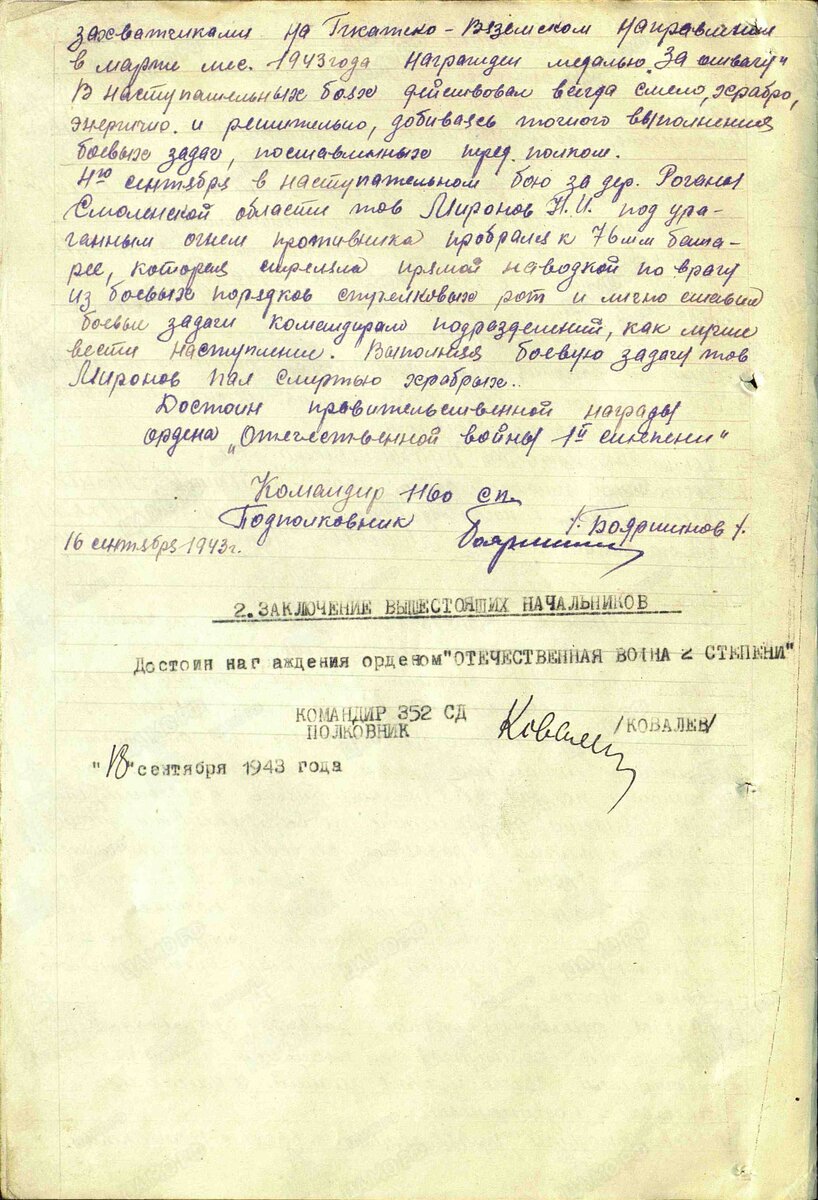 захватчиками на Гжатско-Вяземском направлении
в марте мес. 1943 года награжден медалью „За отвагу"
В наступательных боях действовал всегда смело, храбро,
энергично и решительно, добиваясь точного выполнения
боевых задач, поставленных перед полком.
4го сентября в наступательном бою за дер. Роганы
Смоленской области тов Миронов Н.И. под ура-
ганным огнем противника пробрался к 76 мм бата-
рее, которая стреляла прямой наводкой по врагу
из боевых порядков стрелковых рот и лично ставил
боевые задачи командирам подразделений, как лучше
вести наступление. Выполняя боевую задачу тов
Миронов пал смертью храбрых.
Достоин правительственной награды
ордена „Отечественной войны 1й степени"
Командир 1160 сп.
Подполковник /Бояринов/.
16 сентября 1943г.
2. ЗАКЛЮЧЕНИЕ ВЫШЕСТОЯЩИХ НАЧАЛЬНИКОВ
Достоин наг аждения орденом "ОТЕЧЕСТВЕННАЯ ВОЙНА 2 СТЕПЕНИ"
КОМАНДИР 352 СД
ПОЛКОВНИК Ковалев /КОВАЛЕВ/
"18" сентября 1943 года